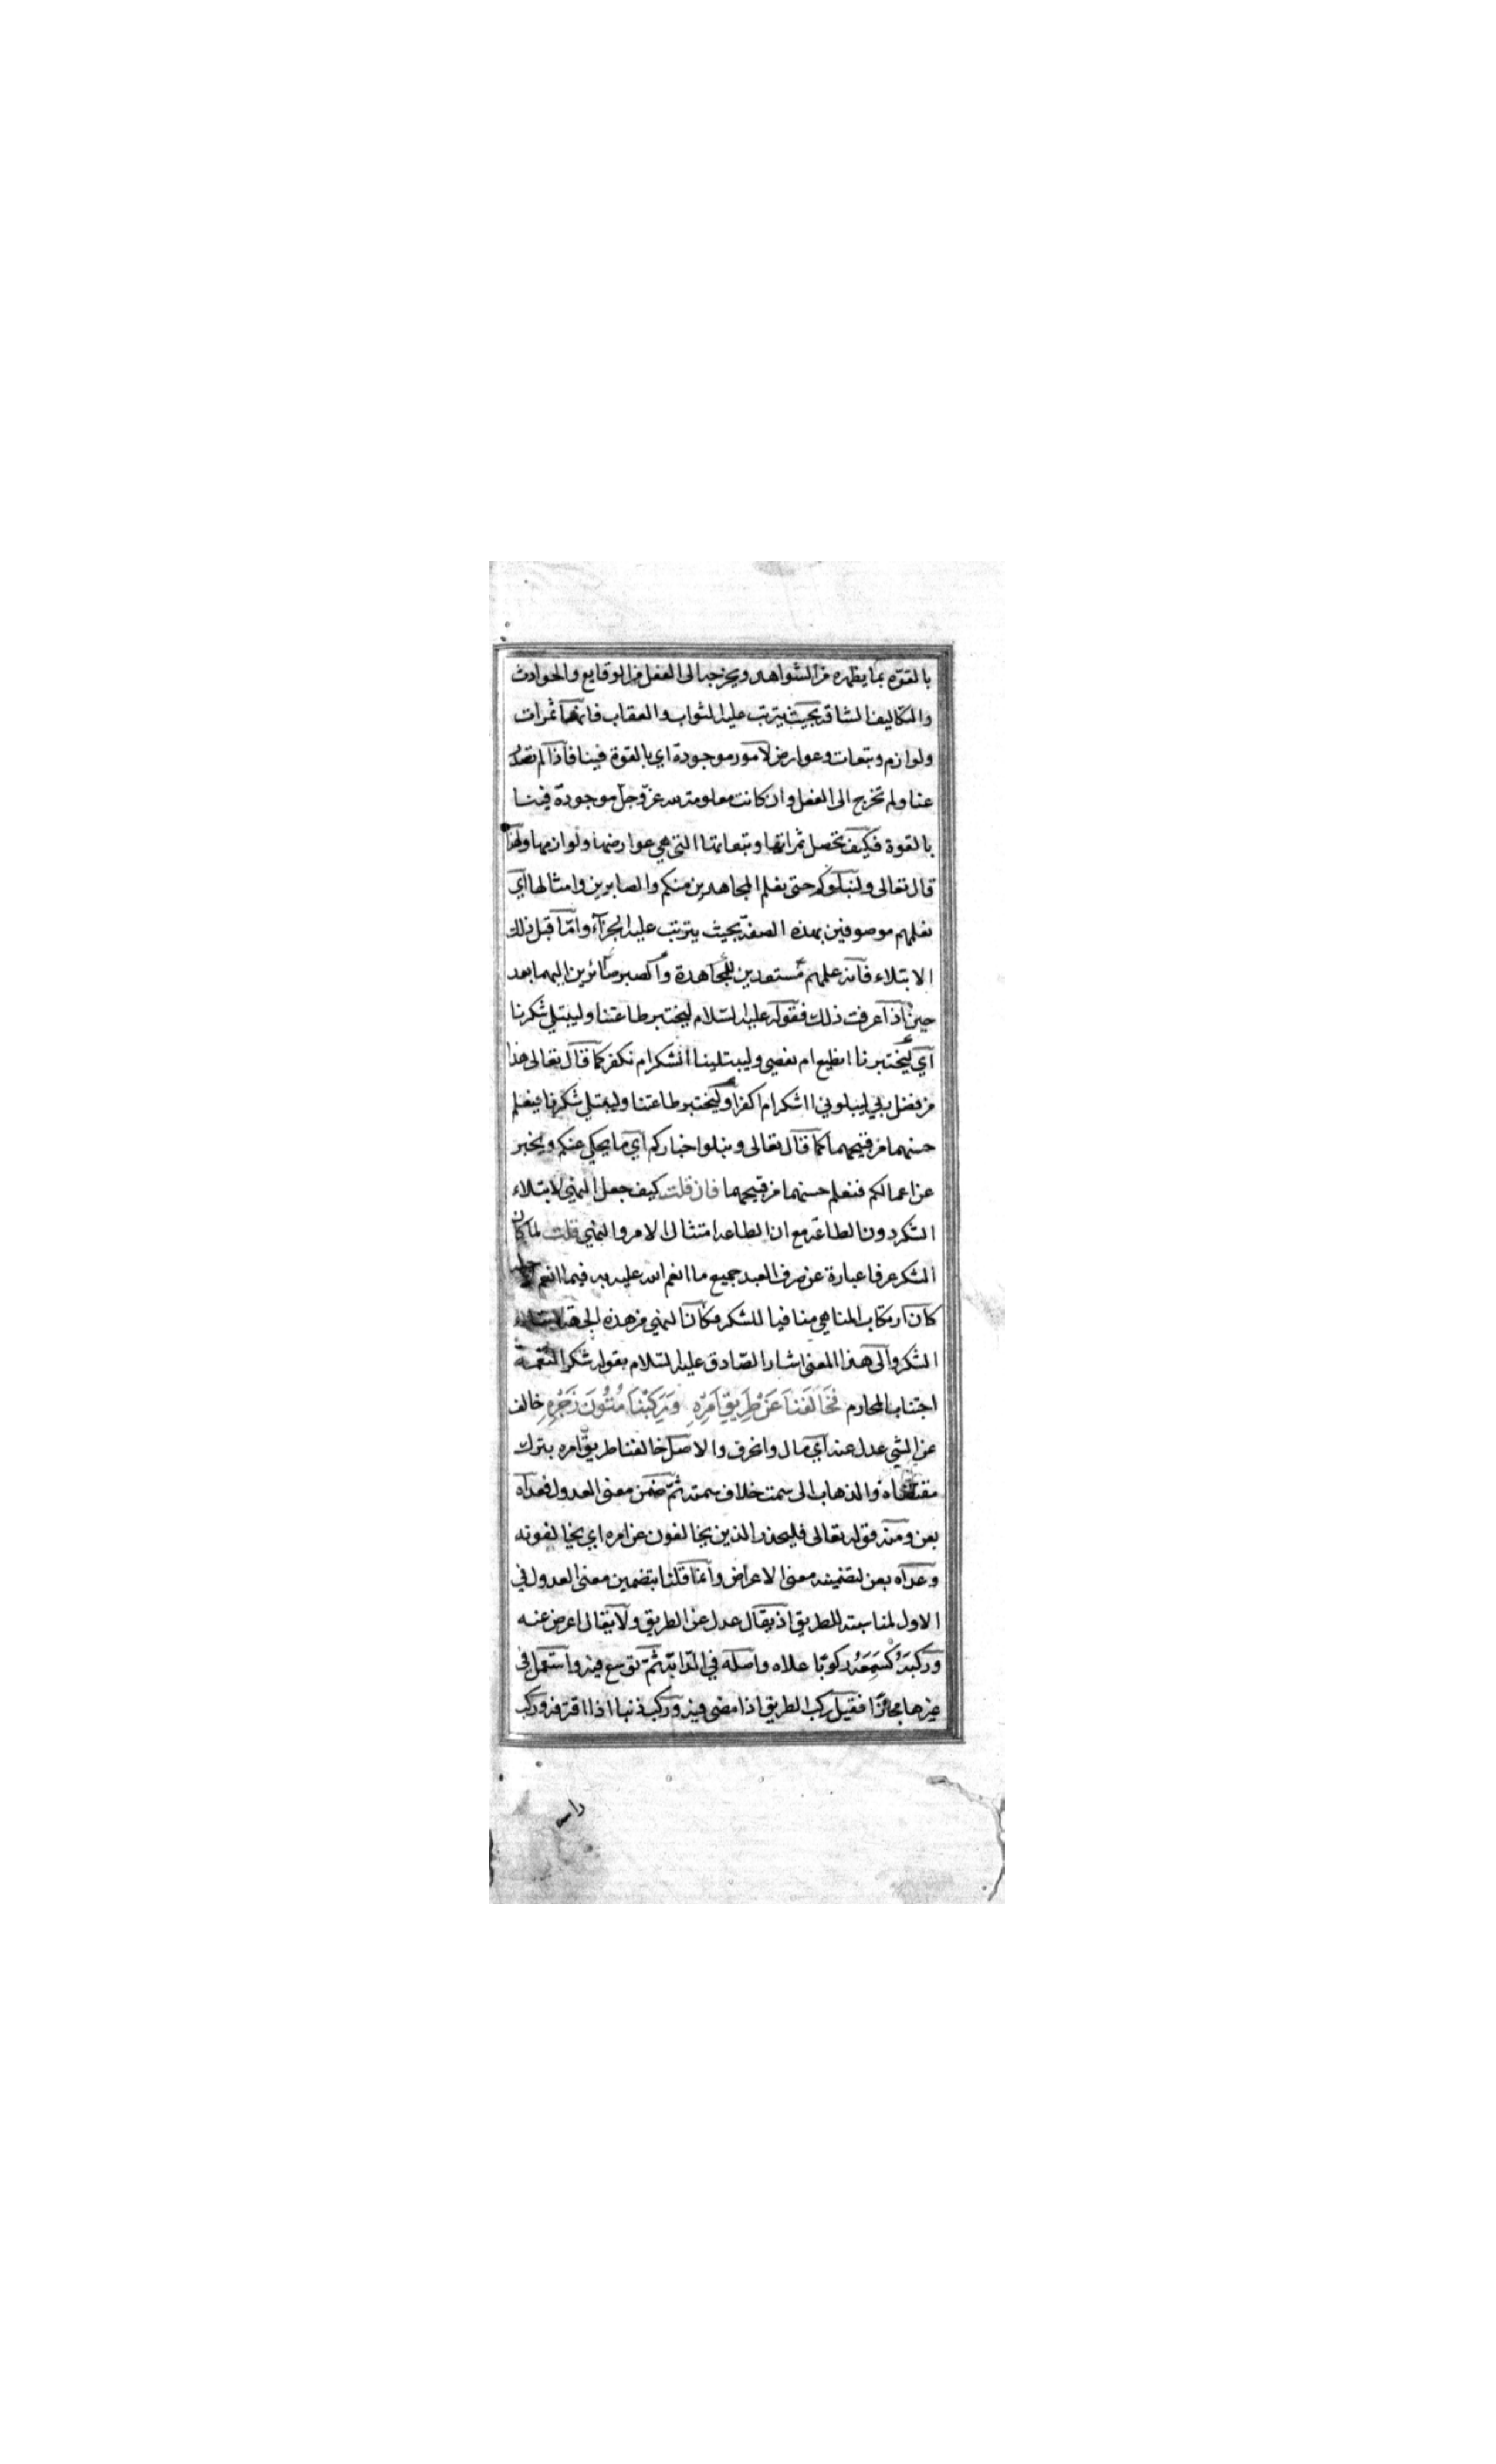 بالقوّه بما يظهره من الشواهد ويخرجه الى الفعل من الوقايع والحوادث
والتكاليف الشاقه بحيث يترتب عليه الثواب والعقاب فانهما ثمرات
ولوازم وتبعات وعوارض لامور موجودة اي بالقوة فينا فاذا لم تصدر
عنا ولم تخرج الى الفعل وان كانت معلومة لله عزّ وجلّ موجودة فينا
بالقوة فكيف تحصل ثمراتها وتبعاتها التي هي عوارضها ولوازمها ولهذا
قال تعالى ولنبلونكم حتى نعلم المجاهدين منكم والصابرين وامثالها اي
نعلمهم موصوفين بهذه الصفة بحيث يترتب عليه الجزآء وامّا قبل ذلك
الابتلاء فانه علمهم مستعدين للمجاهدة والصبر صائرين اليهما بعد
حين اذا عرفت ذلك فقوله عليه السّلام ليختبر طاعتنا وليبتلي شكرنا
اي ليختبرنا انطيع ام نعصي وليبتلينا انشكر ام نكفر كما قال تعالى هذا
من فضل ربي ليبلوني ااشكر ام اكفر او ليختبر طاعتنا وليبتلي شكرنا فيعلم
حسنهما من قبيحهما كما قال تعالى ونبلوا خباركم اي ما يحكي عنكم ويخبر
عن اعمالكم فنعلم حسنهما من قبيحهما فان قلت كيف جعل النهي لابتلاء
الشكر دون الطاعة مع ان الطاعه امتثال الامر والنهي قلت لما كان
الشكر عرفا عبارة عن صرف العبد جميع ما انعم الله عليه به فيما انعم لاجله
كان ارتكاب المناهي منافيا للشكر فكان النهي من هذه الجهة لابتلاء
الشكر والى هذا المعنى اشار الصّادق عليه السّلام بقوله شكر النّعمة
اجتناب المحارم فَخَالَفْنَا عَنْ طَرِيقِ اَمْرِهِ وَرَكِبْنَا مُتُونَ زَجْرِهِ خالف
عن الشي عدل عنه اي مال وانحرف والاصل خالفنا طريق امره بترك
مقتضاه والذهاب الى سمت خلاف سمته ثمّ ضمن معنى العدول فعدّاه
بعن ومنه قوله تعالى فليحذر الذين يخالفون عن امره اي يخالفونه
وعدّاه بعن لتضمينه معنى الاعراض وانّما قلنا بتضمين معنى العدول في
الاول لمناسبته للطريق اذ يقال عدل عن الطريق ولا يقال اعرض عنه
وركبَهُ كسَمِعَهُ ركوبًا علاه واصله في الدّابّة ثمّ توسع فيه واستعمل في
غيرها مجازًا فقيل ركب الطريق اذا مضى فيه وركب ذنبا اذا اقترفه وركب